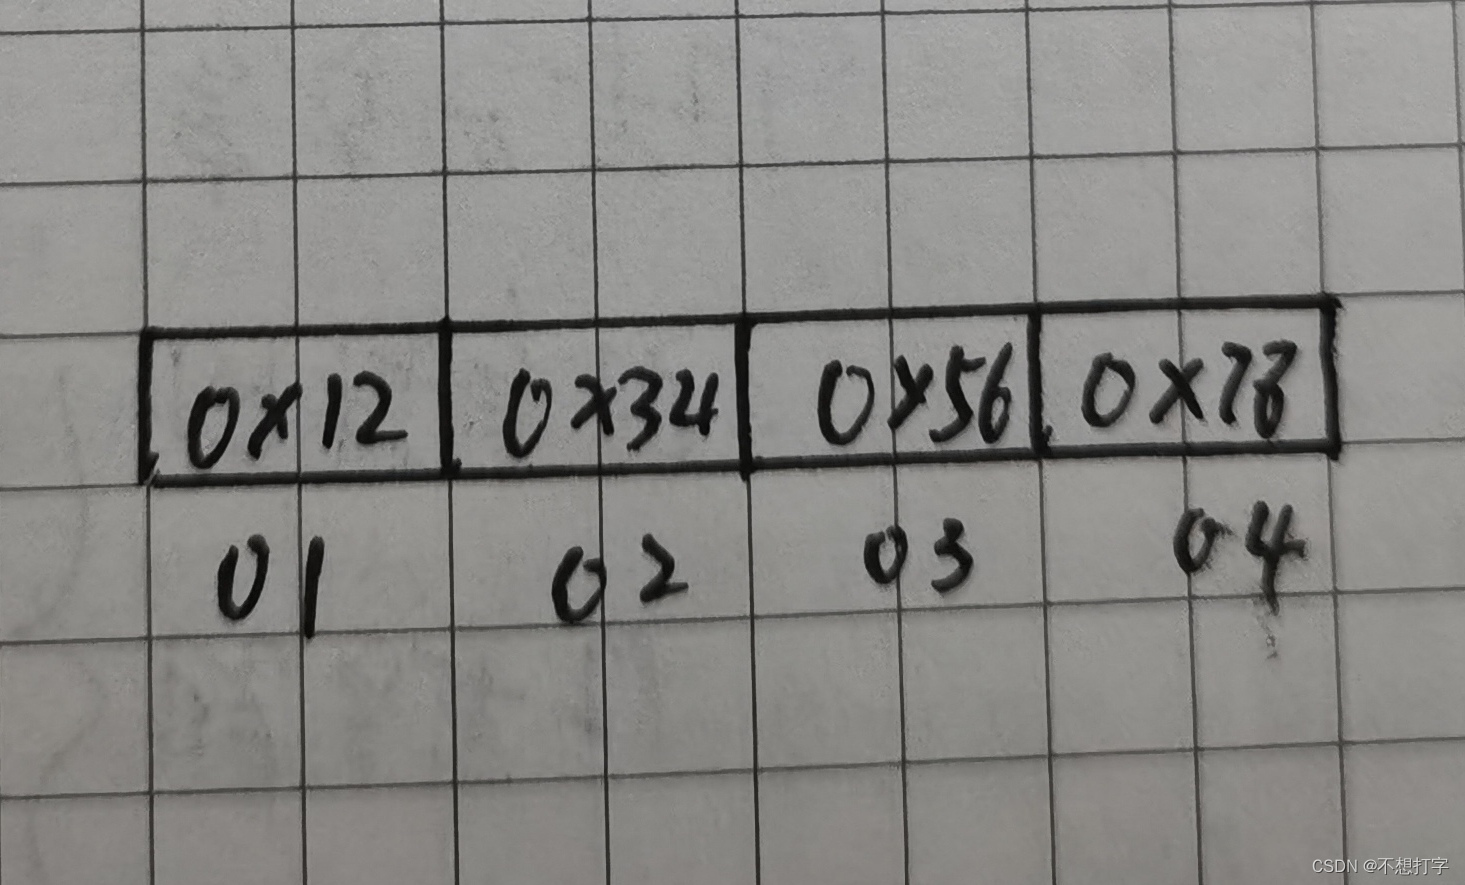 0x12 0x34 0x56 0x78
01 02 03 04
CSDN @不想打字